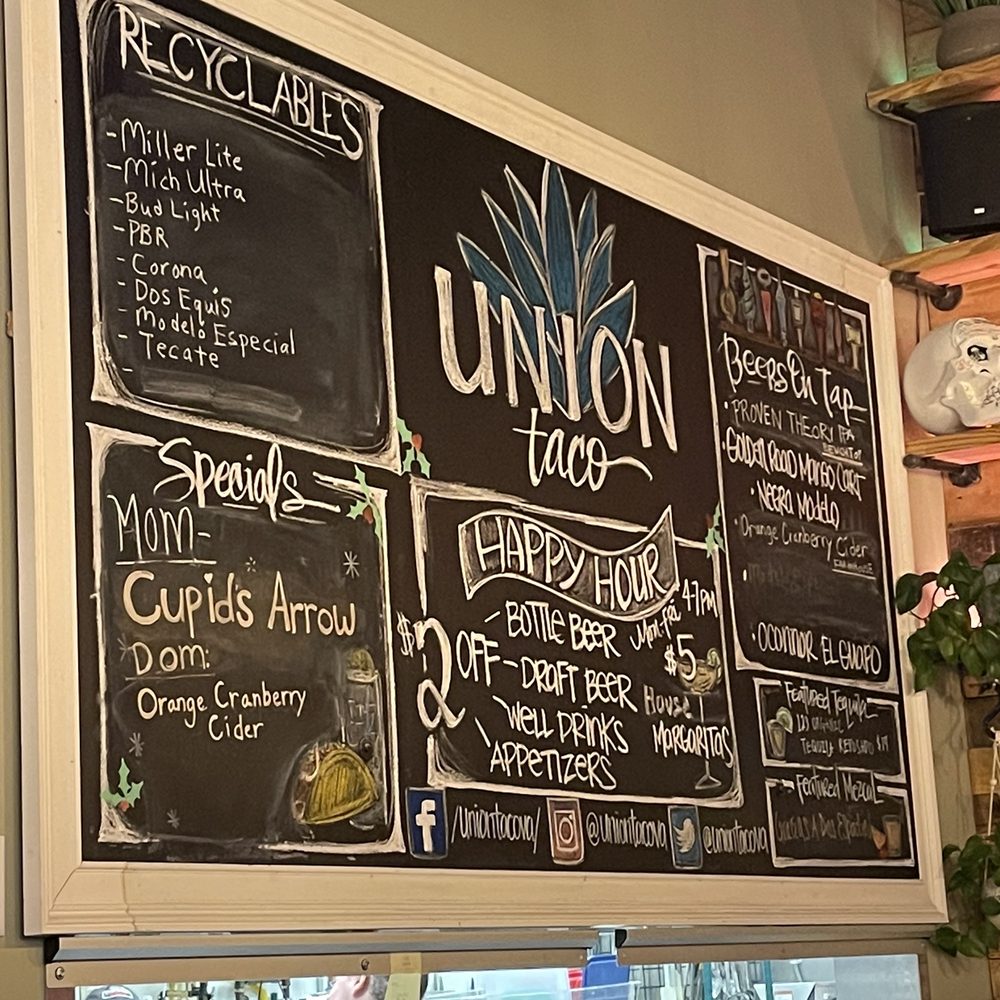 RECYCLABLES
- Miller Lite
- Mich Ultra
- Bud Light
- PBR
- Corona
- Dos Equis
- Modelo Especial
- Tecate
-
Specials
MOM-
Cupid's Arrow
DOM:
Orange Cranberry
Cider
UNION
taco
HAPPY HOUR
Mon-fri 4-7PM
$2 OFF
- BOTTLE BEER
- DRAFT BEER
WELL DRINKS
APPETIZERS
$5
House
MARGARITAS
f /uniontacova/
@uniontacova
@uniontacova
Beers On Tap
• PROVEN THEORY IPA
• GOLDEN ROAD MANGO CART
• NEGRA MODELO
• Orange Cranberry Cider
• OCONNOR EL GUAPO
Featured Tequila
Featured Mezcal